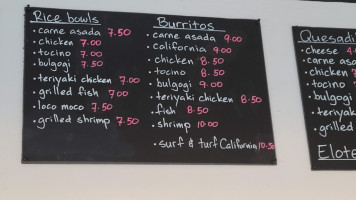 Rice bowls
· carne asada 7.50
· chicken 7.00
· tocino 7.00
· bulgogi 7.50
· teriyaki chicken 7.00
· grilled fish 7.00
· loco moco 7.50
· grilled shrimp 7.50
Burritos
· carne asada 9.00
· california 9.00
· chicken 8.50
· tocino 8.50
· bulgogi 9.00
· teriyaki chicken 8.50
· fish 8.50
· shrimp 10.00
· surf & turf California 10.50
Quesadi
· cheese 4
· carne asa
· chicken 7
· tocino
· bulgogi
· teriyak
· grill
Elote